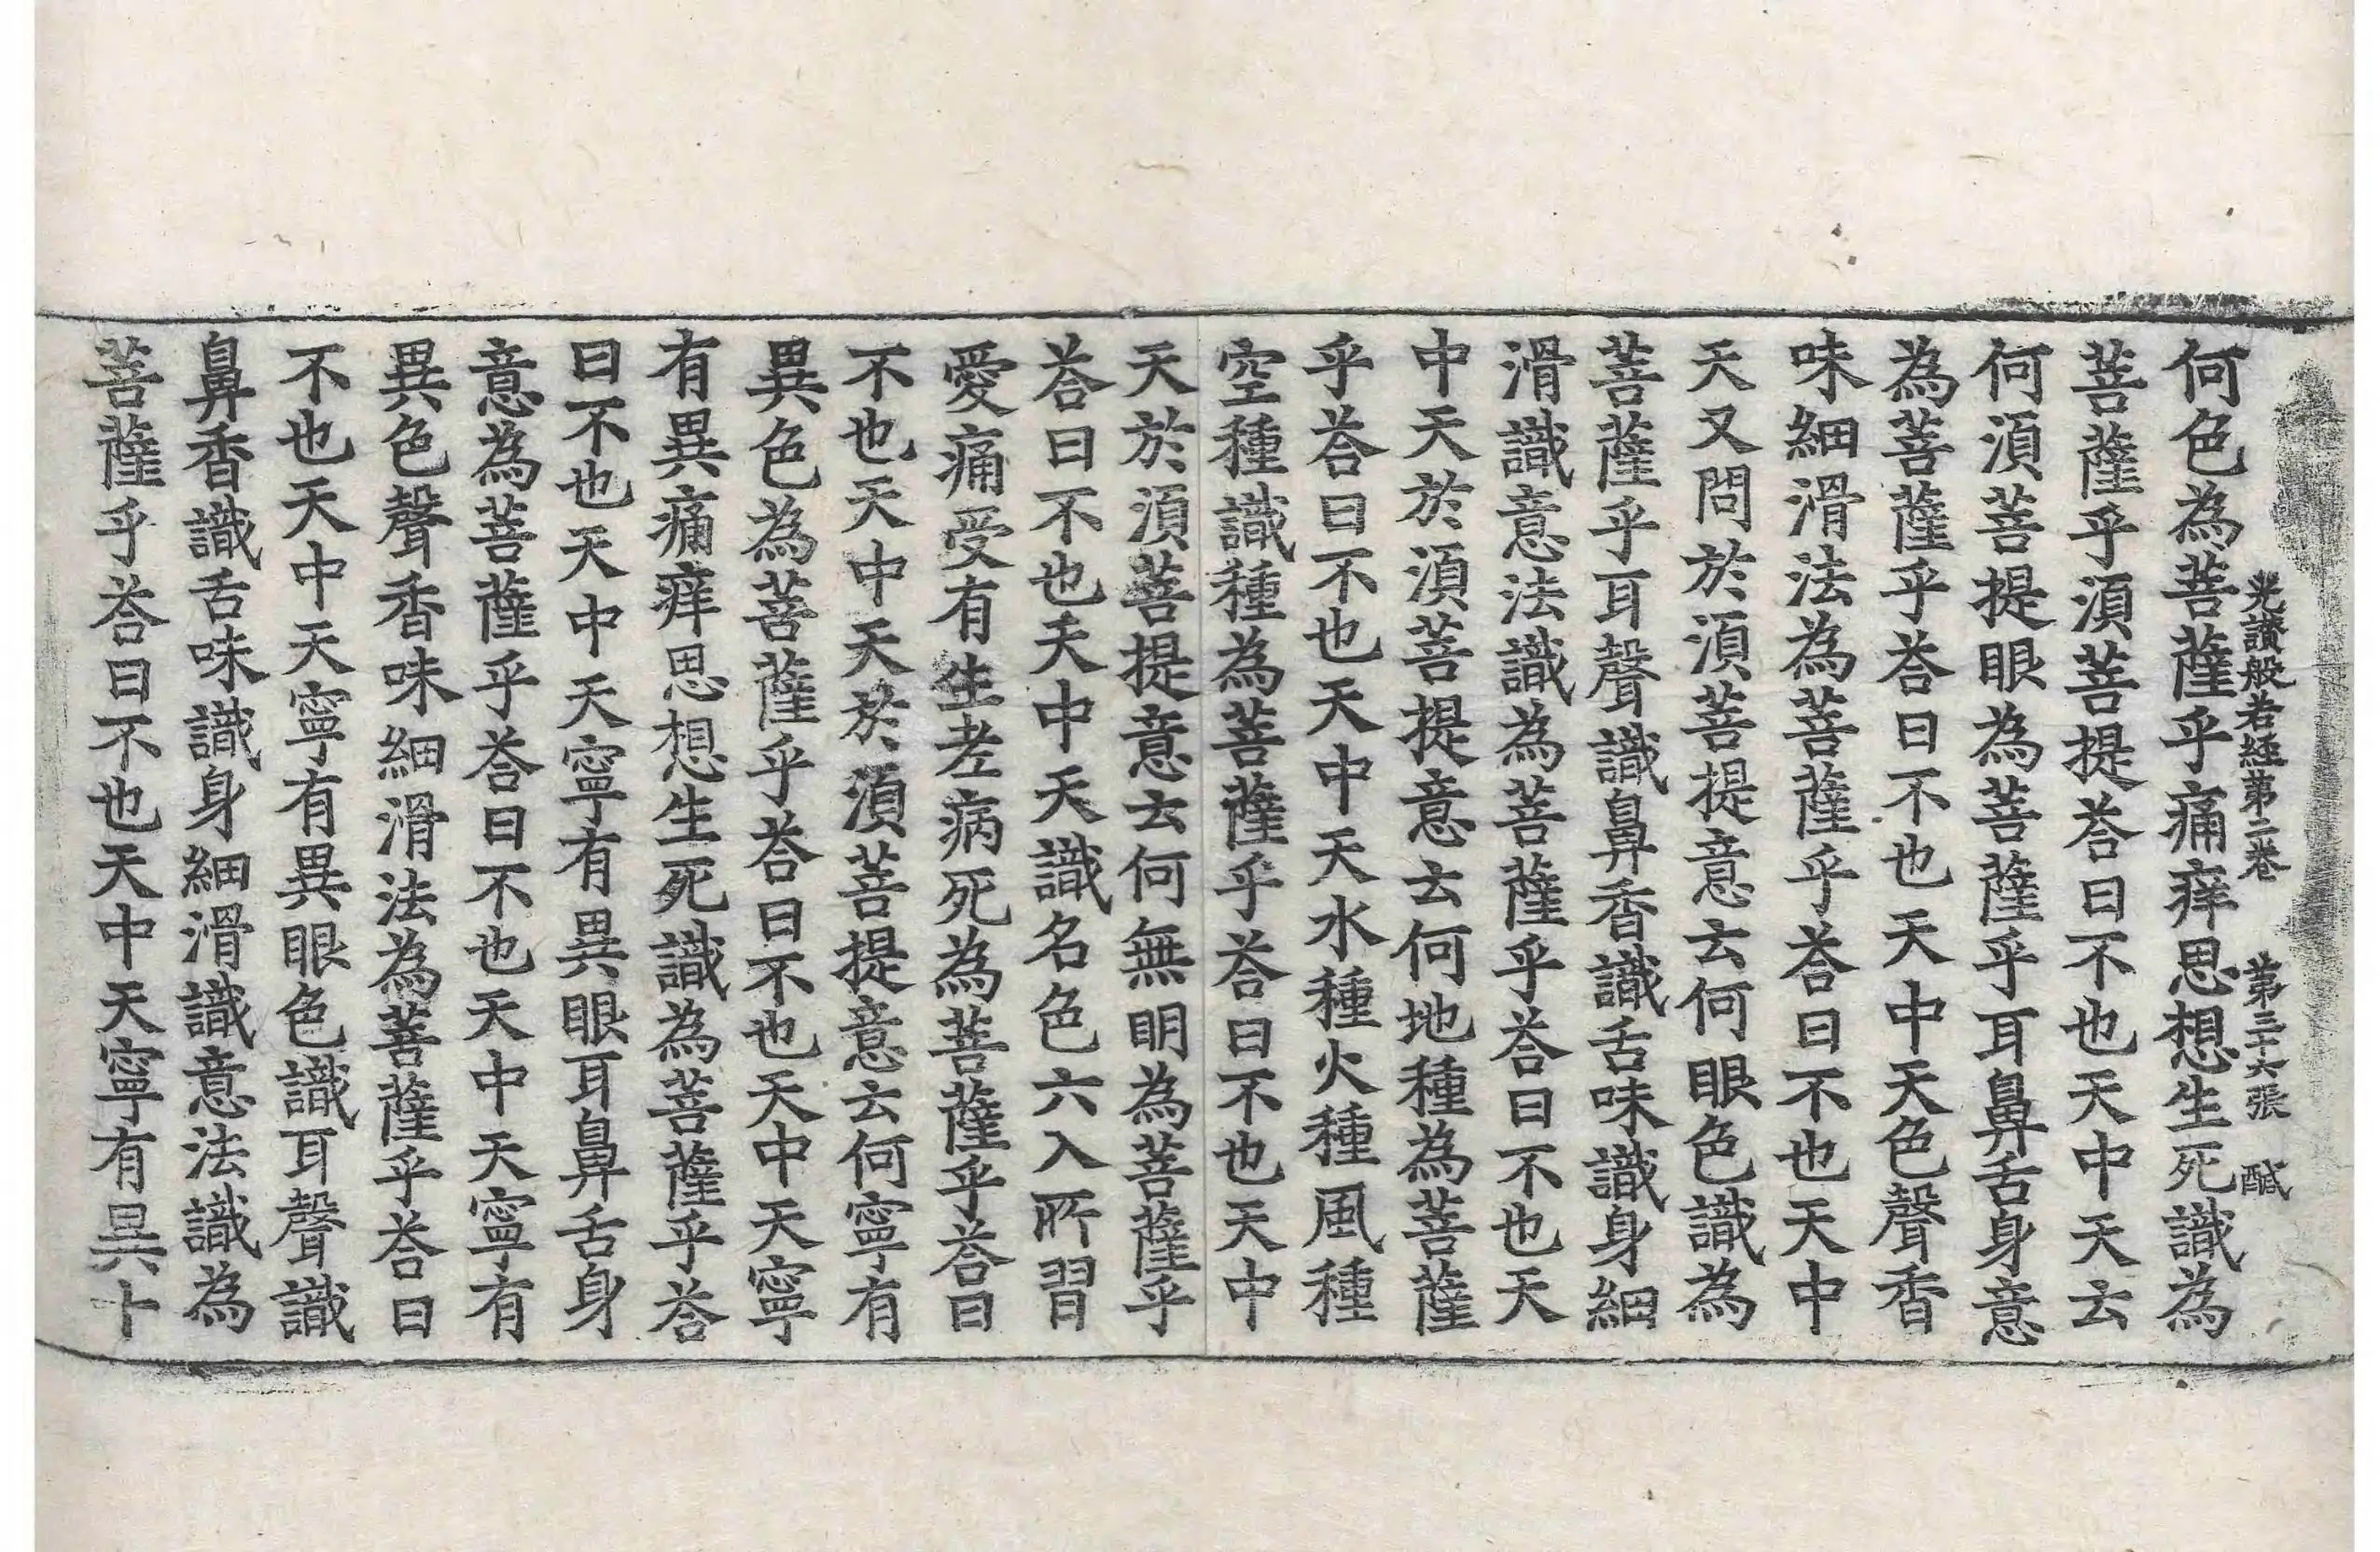 光讃般若經第二卷　第三十六張　醎
何色為菩薩乎痛痒思想生死識為
菩薩乎湏菩提荅曰不也天中天云
何湏菩提眼為菩薩乎耳鼻舌身意
為菩薩乎荅曰不也天中天色聲香
味細滑法為菩薩乎荅曰不也天中
天又問於湏菩提意云何眼色識為
菩薩乎耳聲識鼻香識舌味識身細
滑識意法識為菩薩乎荅曰不也天
中天於湏菩提意云何地種為菩薩
乎荅曰不也天中天水種火種風種
空種識種為菩薩乎荅曰不也天中
天於湏菩提意云何無明為菩薩乎
荅曰不也天中天識名色六入所習
愛痛受有生老病死為菩薩乎荅曰
不也天中天於湏菩提意云何寧有
異色為菩薩乎荅曰不也天中天寧
有異痛痒思想生死識為菩薩乎荅
曰不也天中天寧有異眼耳鼻舌身
意為菩薩乎荅曰不也天中天寧有
異色聲香味細滑法為菩薩乎荅曰
不也天中天寧有異眼色識耳聲識
鼻香識舌味識身細滑識意法識為
菩薩乎荅曰不也天中天寧有異